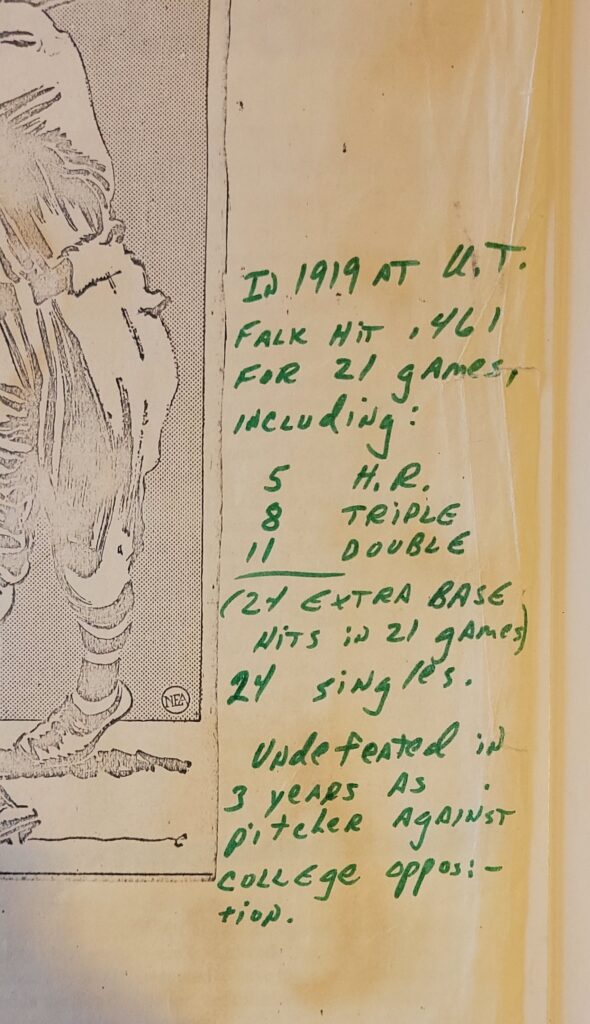 In 1919 AT U.T.
FALK Hit .461
FOR 21 gAmes,
INCLuding:
5 H.R.
8 TRiPLE
11 DOUBLE
(24 EXTRA BASE
Hits in 21 gAmes)
24 singles.
NEA
Undefeated in
3 yeARs AS
pitcher AgAINST
COLLEge opposi-
tion.